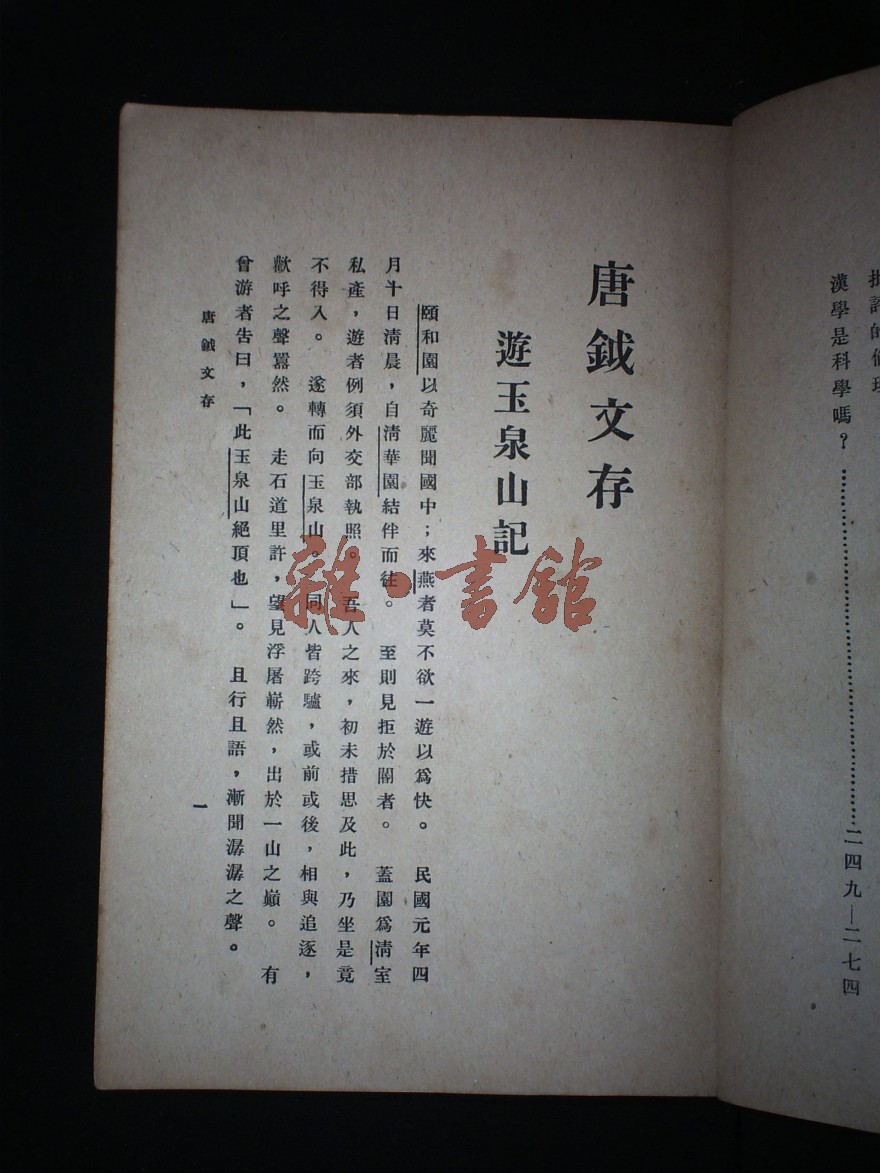 漢學是科學嗎?……二四九—二七四
唐鉞文存
遊玉泉山記
頤和園以奇麗聞國中;來燕者莫不欲一遊以爲快。 民國元年四
月十日淸晨,自淸華園結伴而往。 至則見拒於閽者。 蓋園爲淸室
私產,遊者例須外交部執照。 吾人之來,初未措思及此,乃坐是竟
不得入。 遂轉而向玉泉山。 同人皆跨驢,或前或後,相與追逐,
歡呼之聲囂然。 走石道里許,望見浮屠嶄然,出於一山之巔。 有
曾游者告曰,「此玉泉山絕頂也」。 且行且語,漸聞潺潺之聲。
唐鉞文存
一
雜·書館